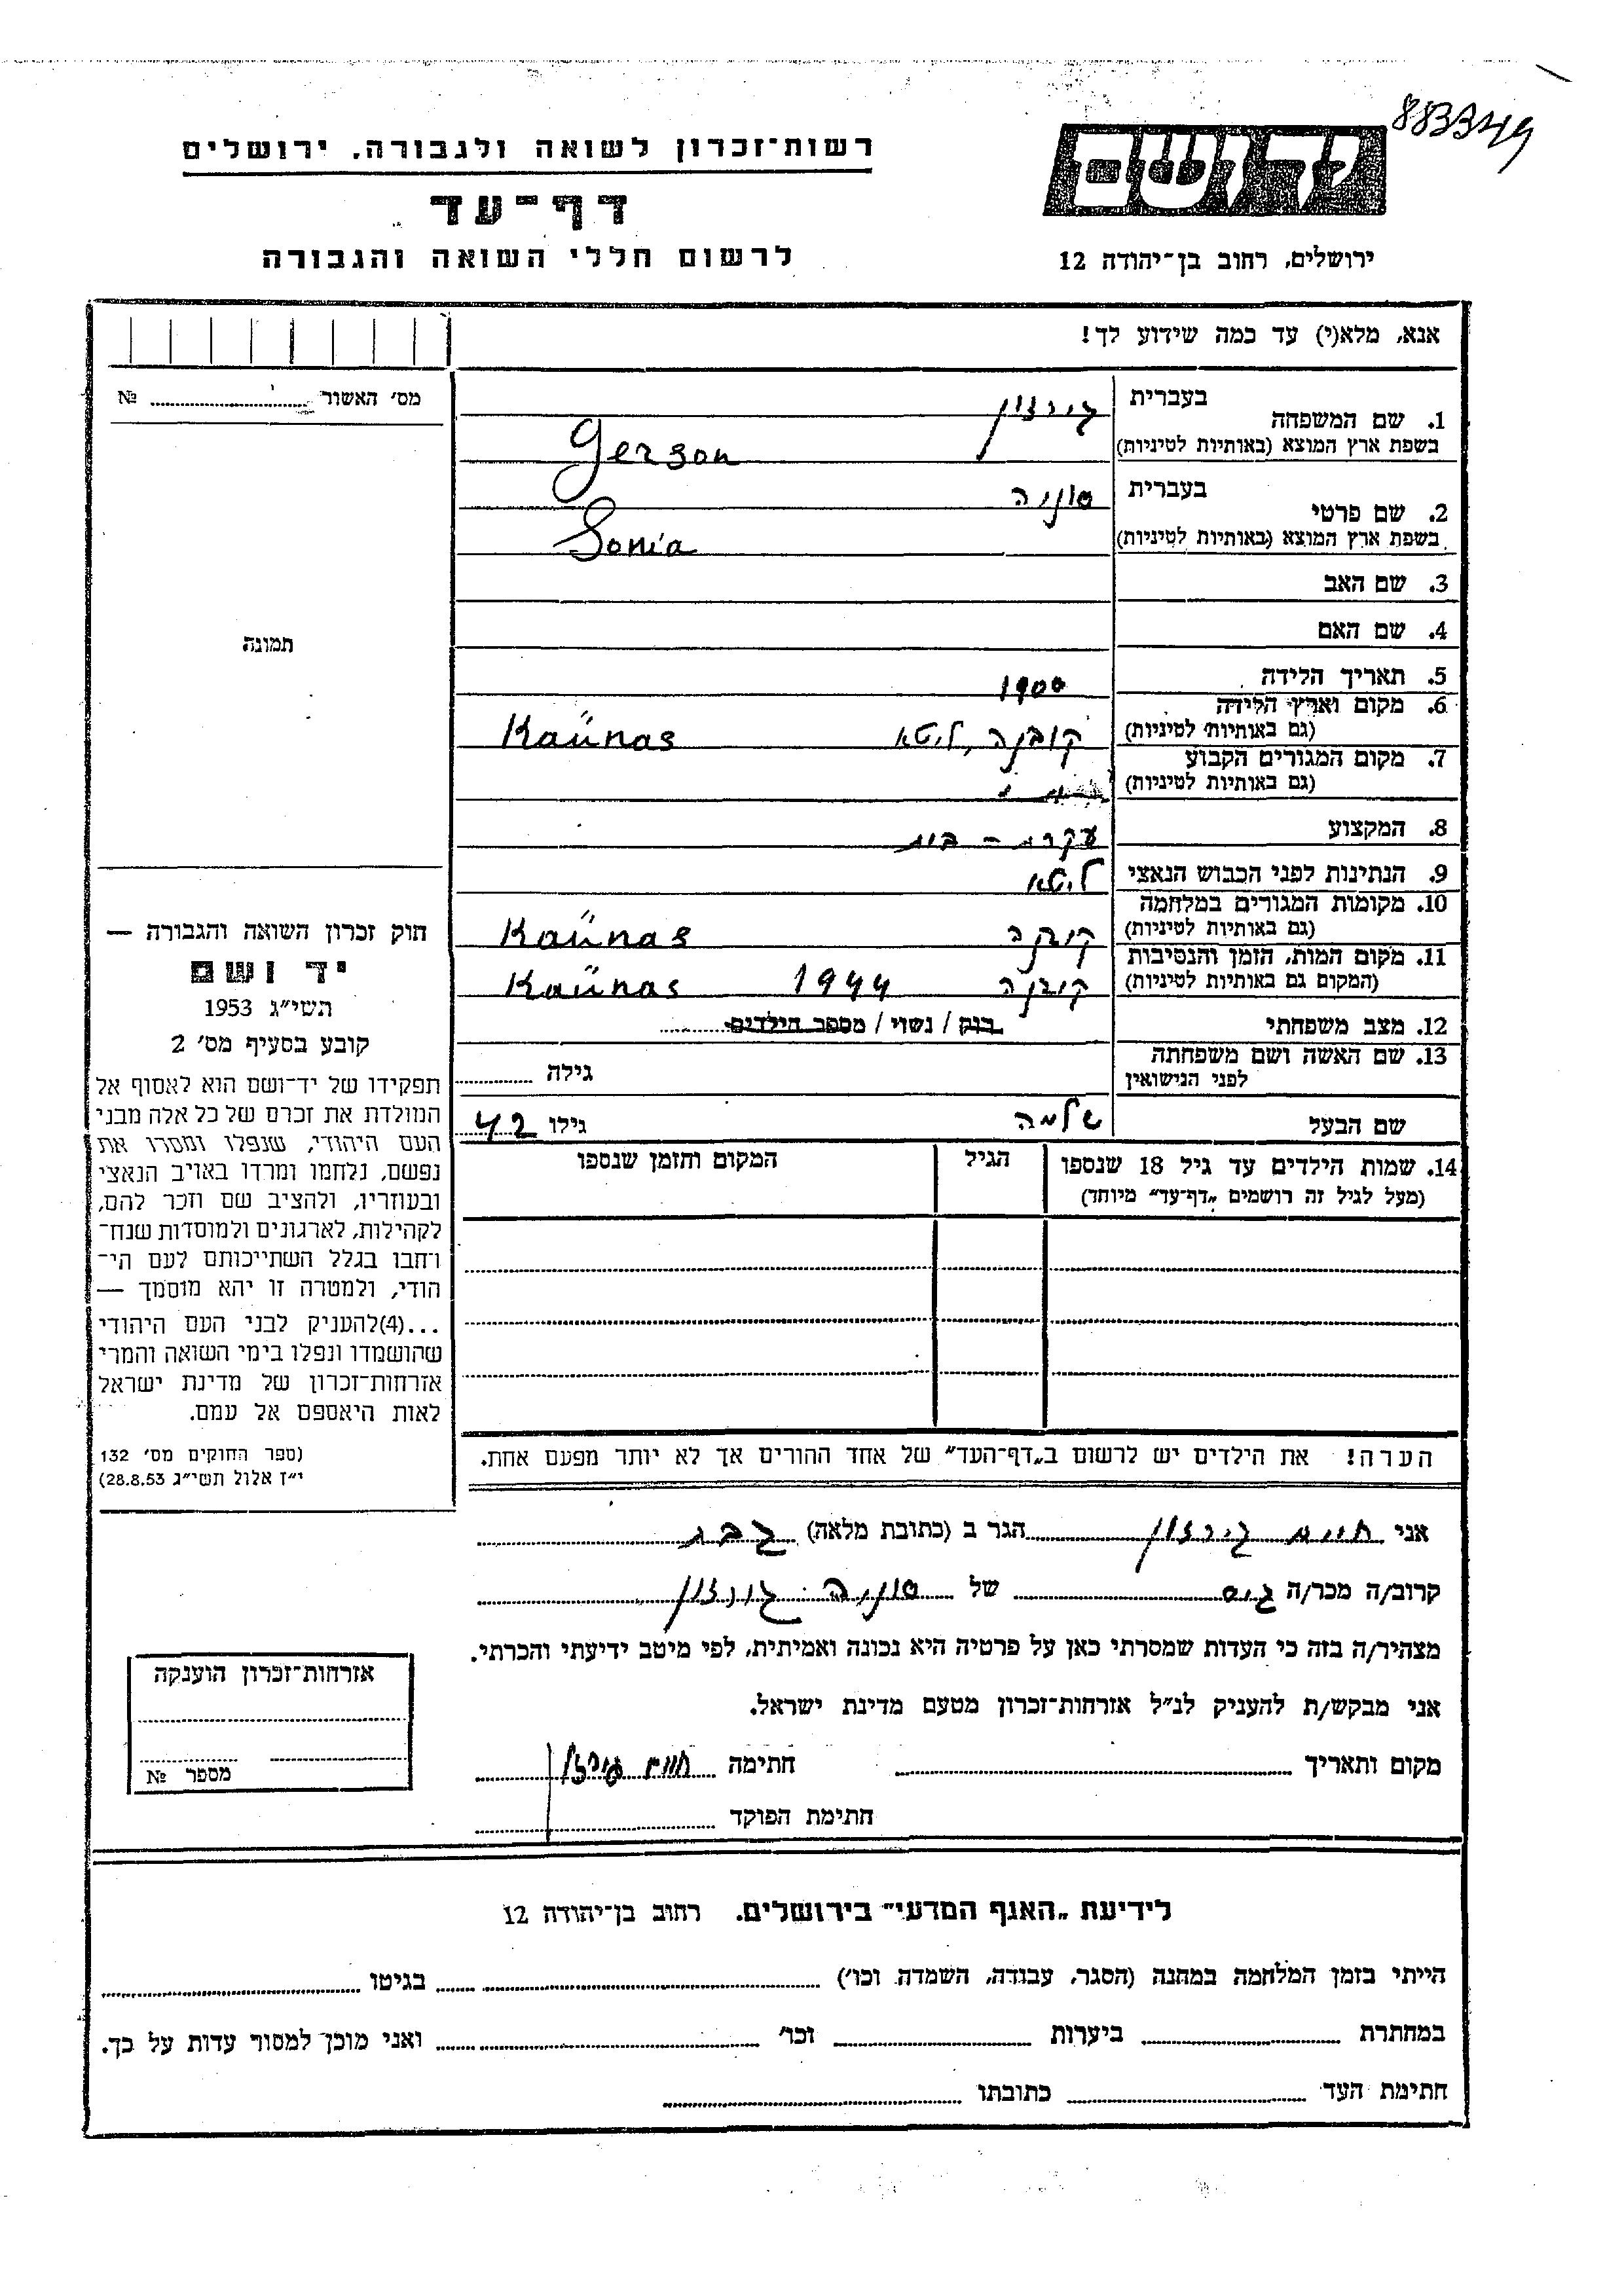 883349
יד ושם
רשות־זכרון לשואה ולגבורה, ירושלים
דף־עד
לרשום חללי השואה והגבורה
ירושלים, רחוב בן־יהודה 12
אנא, מלא(י) עד כמה שידוע לך!
מס׳ האשור № 
1. שם המשפחה
בעברית
גרזון
בשפת ארץ המוצא (באותיות לטיניות)
Gerson
2. שם פרטי
בעברית
סוניה
בשפת ארץ המוצא (באותיות לטיניות)
Sonia
3. שם האב
4. שם האם
תמונה
5. תאריך הלידה 1900
6. מקום וארץ הלידה
(גם באותיות לטיניות) קובנה, ליטא Kaunas
7. מקום המגורים הקבוע
(גם באותיות לטיניות)
8. המקצוע עקרת - בית
9. הנתינות לפני הכבוש הנאצי ליטא
10. מקומות המגורים במלחמה
(גם באותיות לטיניות) קובנה Kaunas
11. מקום המות, הזמן והנסיבות
(המקום גם באותיות לטיניות) קובנה 1944 Kaunas
12. מצב משפחתי רוק / נשוי / מספר הילדים
13. שם האשה ושם משפחתה
לפני הנישואין גילה
שם הבעל שלמה גילו 42
14. שמות הילדים עד גיל 18 שנספו הגיל המקום והזמן שנספו
(מעל לגיל זה רושמים „דף־עד״ מיוחד)
חוק זכרון השואה והגבורה —
יד ושם
תשי״ג 1953
קובע בסעיף מס׳ 2
תפקידו של יד־ושם הוא לאסוף אל
המולדת את זכרם של כל אלה מבני
העם היהודי, שנפלו ומסרו את
נפשם, נלחמו ומרדו באויב הנאצי
ובעוזריו, ולהציב שם וזכר להם,
לקהילות, לארגונים ולמוסדות שנח־
רבו בגלל השתייכותם לעם הי־
הודי, ולמטרה זו יהא מוסמך —
...(4)להעניק לבני העם היהודי
שהושמדו ונפלו בימי השואה והמרי
אזרחות־זכרון של מדינת ישראל
לאות היאספם אל עמם.
(ספר החוקים מס׳ 132
י״ז אלול תשי״ג 28.8.53)
הערה! את הילדים יש לרשום ב„דף־העד״ של אחד ההורים אך לא יותר מפעם אחת.
אני חיים גרזון הגר ב (כתובת מלאה)
קרוב/ה מכר/ה גיס של סוניה גרזון
מצהיר/ה בזה כי העדות שמסרתי כאן על פרטיה היא נכונה ואמיתית, לפי מיטב ידיעתי והכרתי.
אני מבקש/ת להעניק לנ״ל אזרחות־זכרון מטעם מדינת ישראל.
מקום ותאריך חתימה חיים גרזון
חתימת הפוקד
אזרחות־זכרון הוענקה
מספר №
לידיעת „האגף המדעי״ בירושלים. רחוב בן־יהודה 12
הייתי בזמן המלחמה במחנה (הסגר, עבודה, השמדה וכו׳) בגיטו
במחתרת ביערות וכו׳ ואני מוכן למסור עדות על כך.
חתימת העד כתובתו